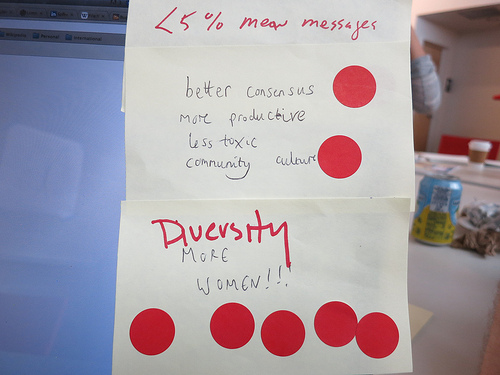 <5% mean messages
better consensus
more productive
less toxic
community culture
Diversity
MORE
WOMEN!!!